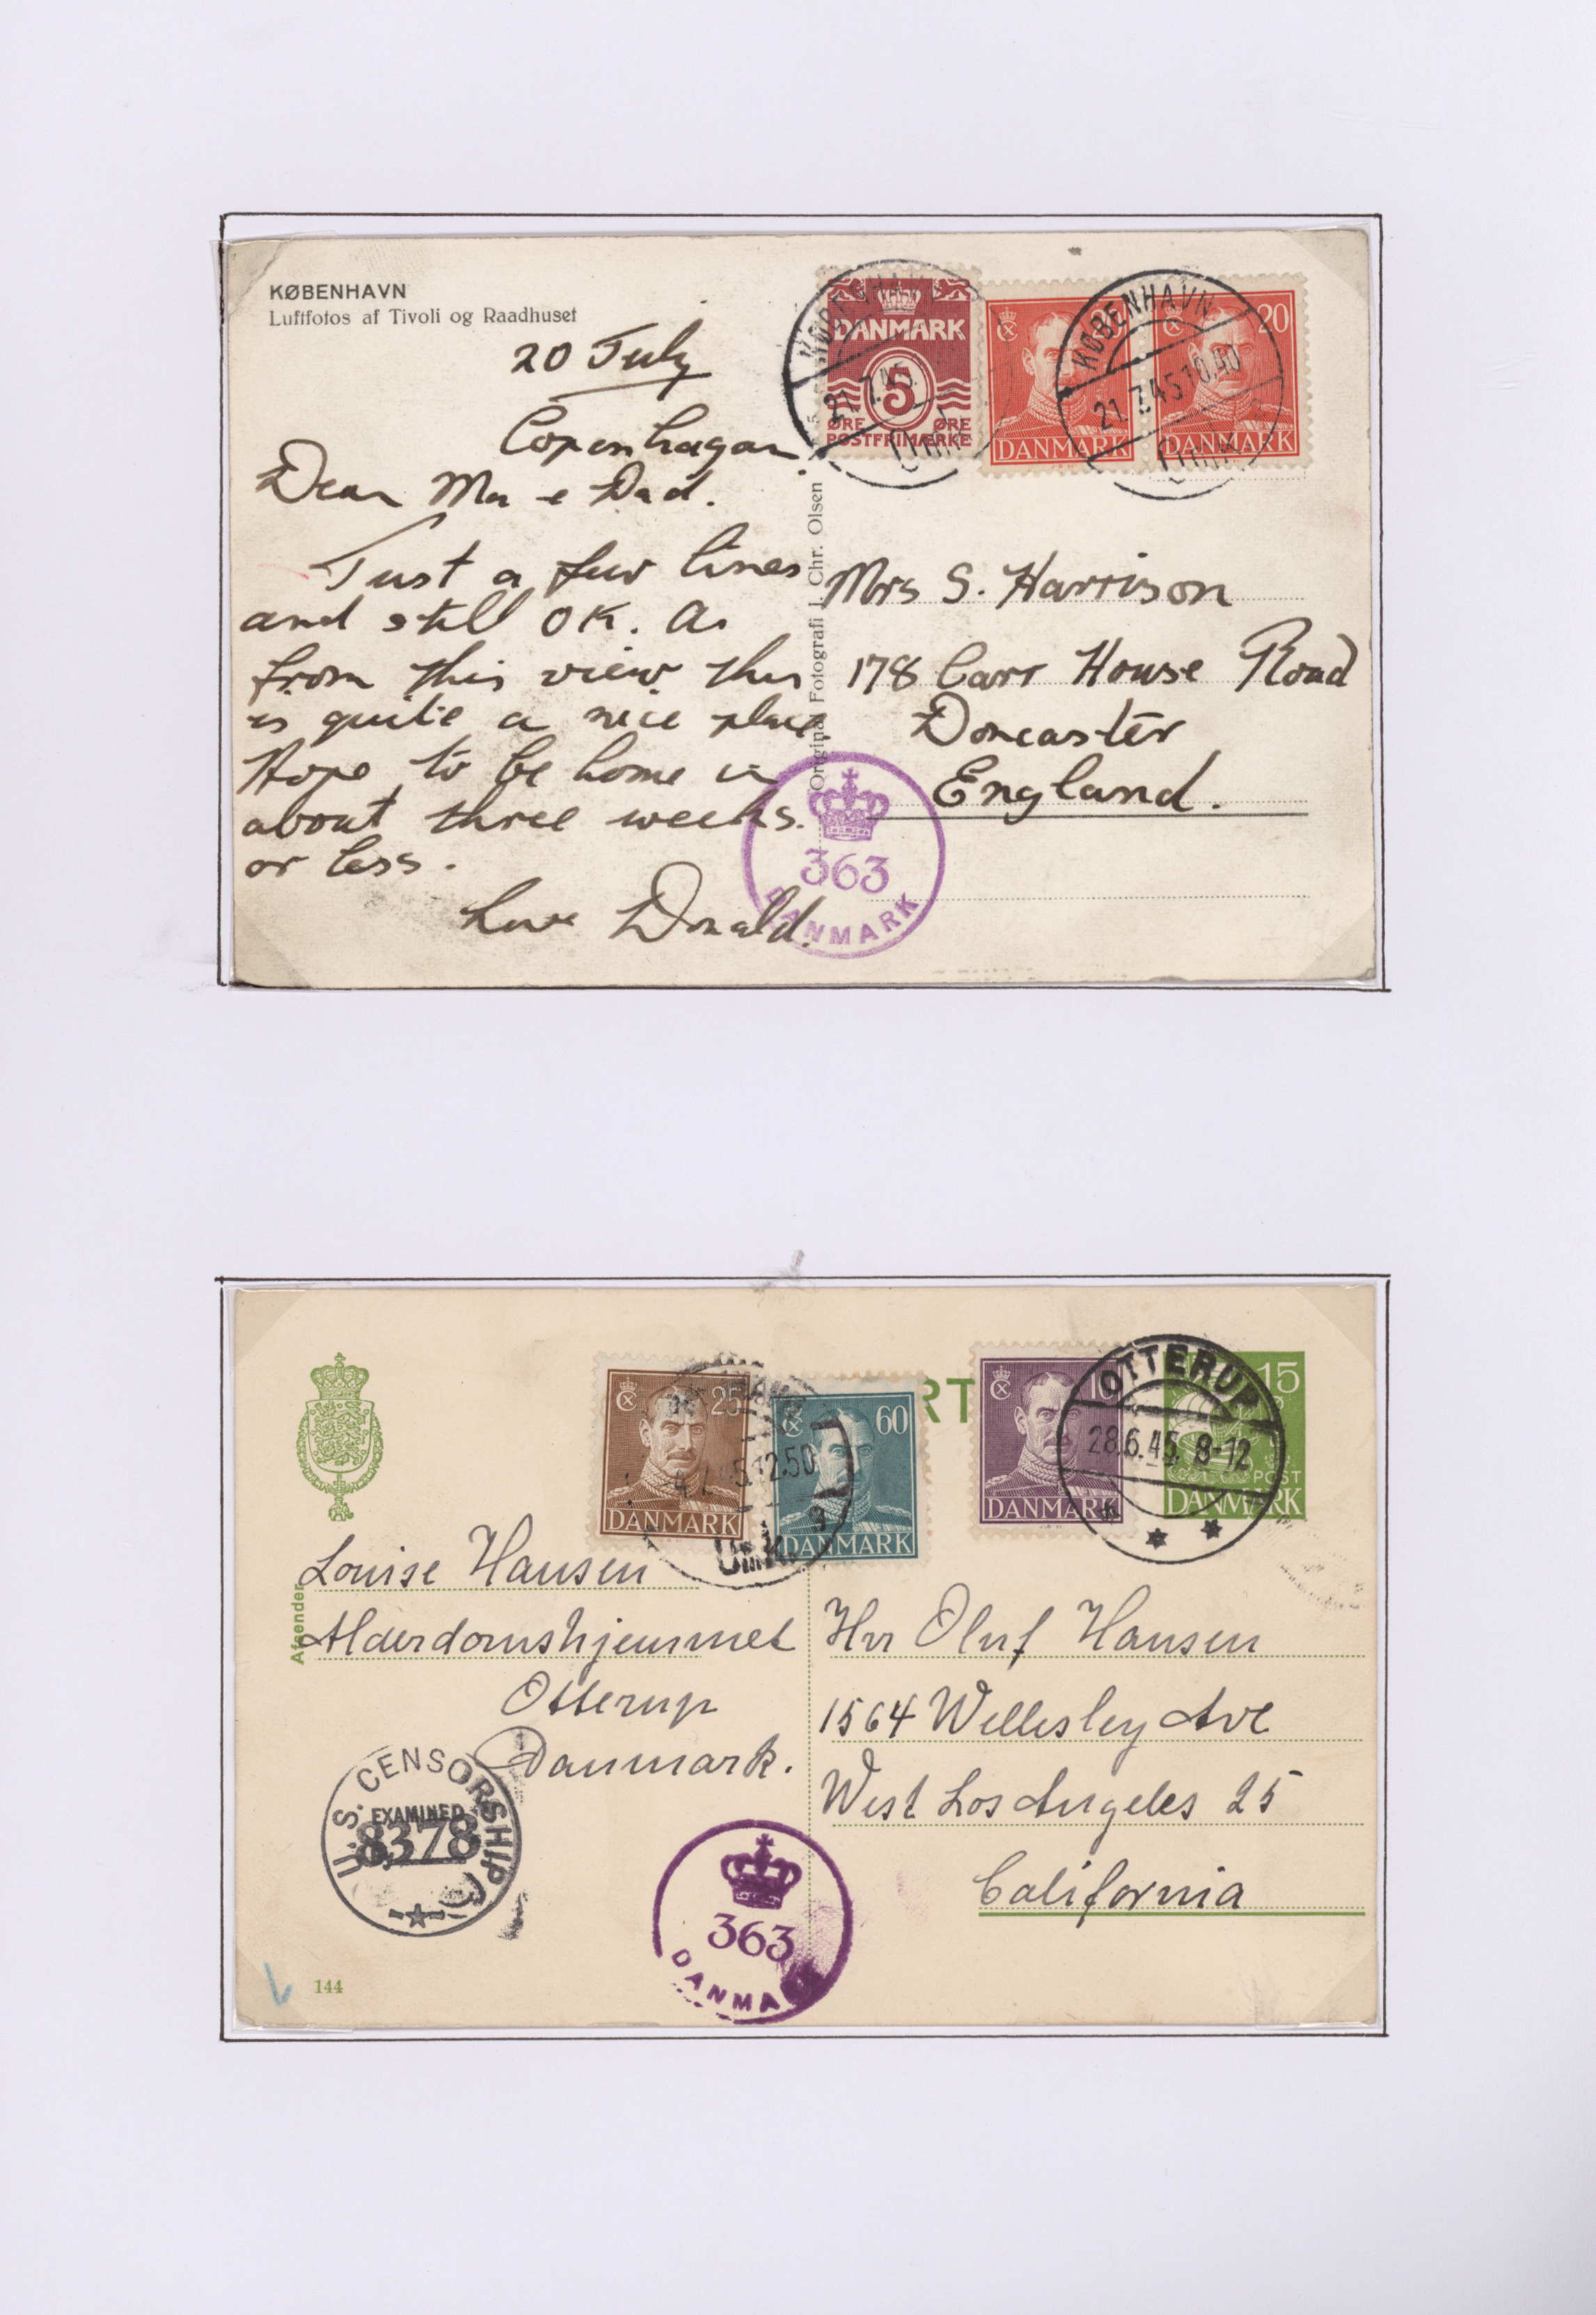 KØBENHAVN
Luftfotos af Tivoli og Raadhuset
20 July
Copenhagan
Dear Ma & Dad.
Just a few lines
and still OK. As
from this view this
is quite a nice place.
Hope to be home in
about three weeks.
or less.
Love Donald.
Original Fotografi J. Chr. Olsen
KØBENHAVN
21.7.45
OMK
DANMARK
5
ØRE ØRE
POSTFRIMÆRKE
DANMARK
20
DANMARK
KØBENHAVN
21.7.45 10.40
OMK
Mrs S. Harrison
178 Carr House Road
Doncaster
England.
363
DANMARK
25
DANMARK
60
DANMARK
5.12.50
OMK.
RT
10
DANMARK
15
POST
DANMARK
OTTERUP
28.6.45. 8-12
Afsender
Louise Hansen
Alderdomshjemmet
Otterup
Danmark.
Hrr Oluf Hansen
1564 Wellesley Ave
West Los Angeles 25
California
U.S. CENSORSHIP
EXAMINED
8378
363
DANMA
144